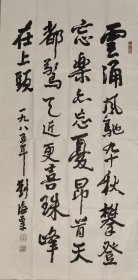 雲涌風馳九十秋攀登
忘樂亦忘憂昂首天
都驚近更喜珠峰
在上頭
一九八五年 劉海粟